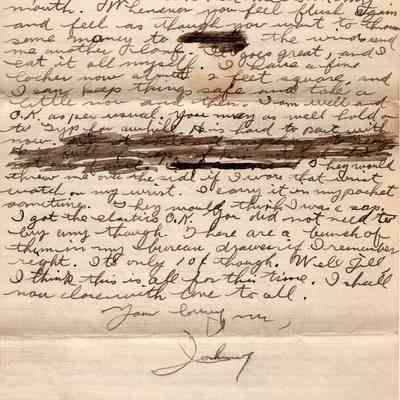 mouth. Whenever you feel flush
and feel as though you want to throw
some money to the wind send
me another loaf. It goes great, and I
eat it all myself. I have a fine
locker now about 2 feet square, and
I can keep things safe and take a
little now and then. I am well and
O.K. as per usual. You may as well hold on
to Gyp for awhile. He is hard to part with
now.
They would
threw me out the if I wore that wrist
watch on my wrist. I carry it in my pocket
sometime. They would think I was a
I got the elastics O.K. You did not need to
buy any though. There are a bunch of
them in my bureau drawer if I remember
right. Its only 10¢ though. Well I'll
I think this is all for this time. I shall
now close with love to all.
Your loving son,
Johnny